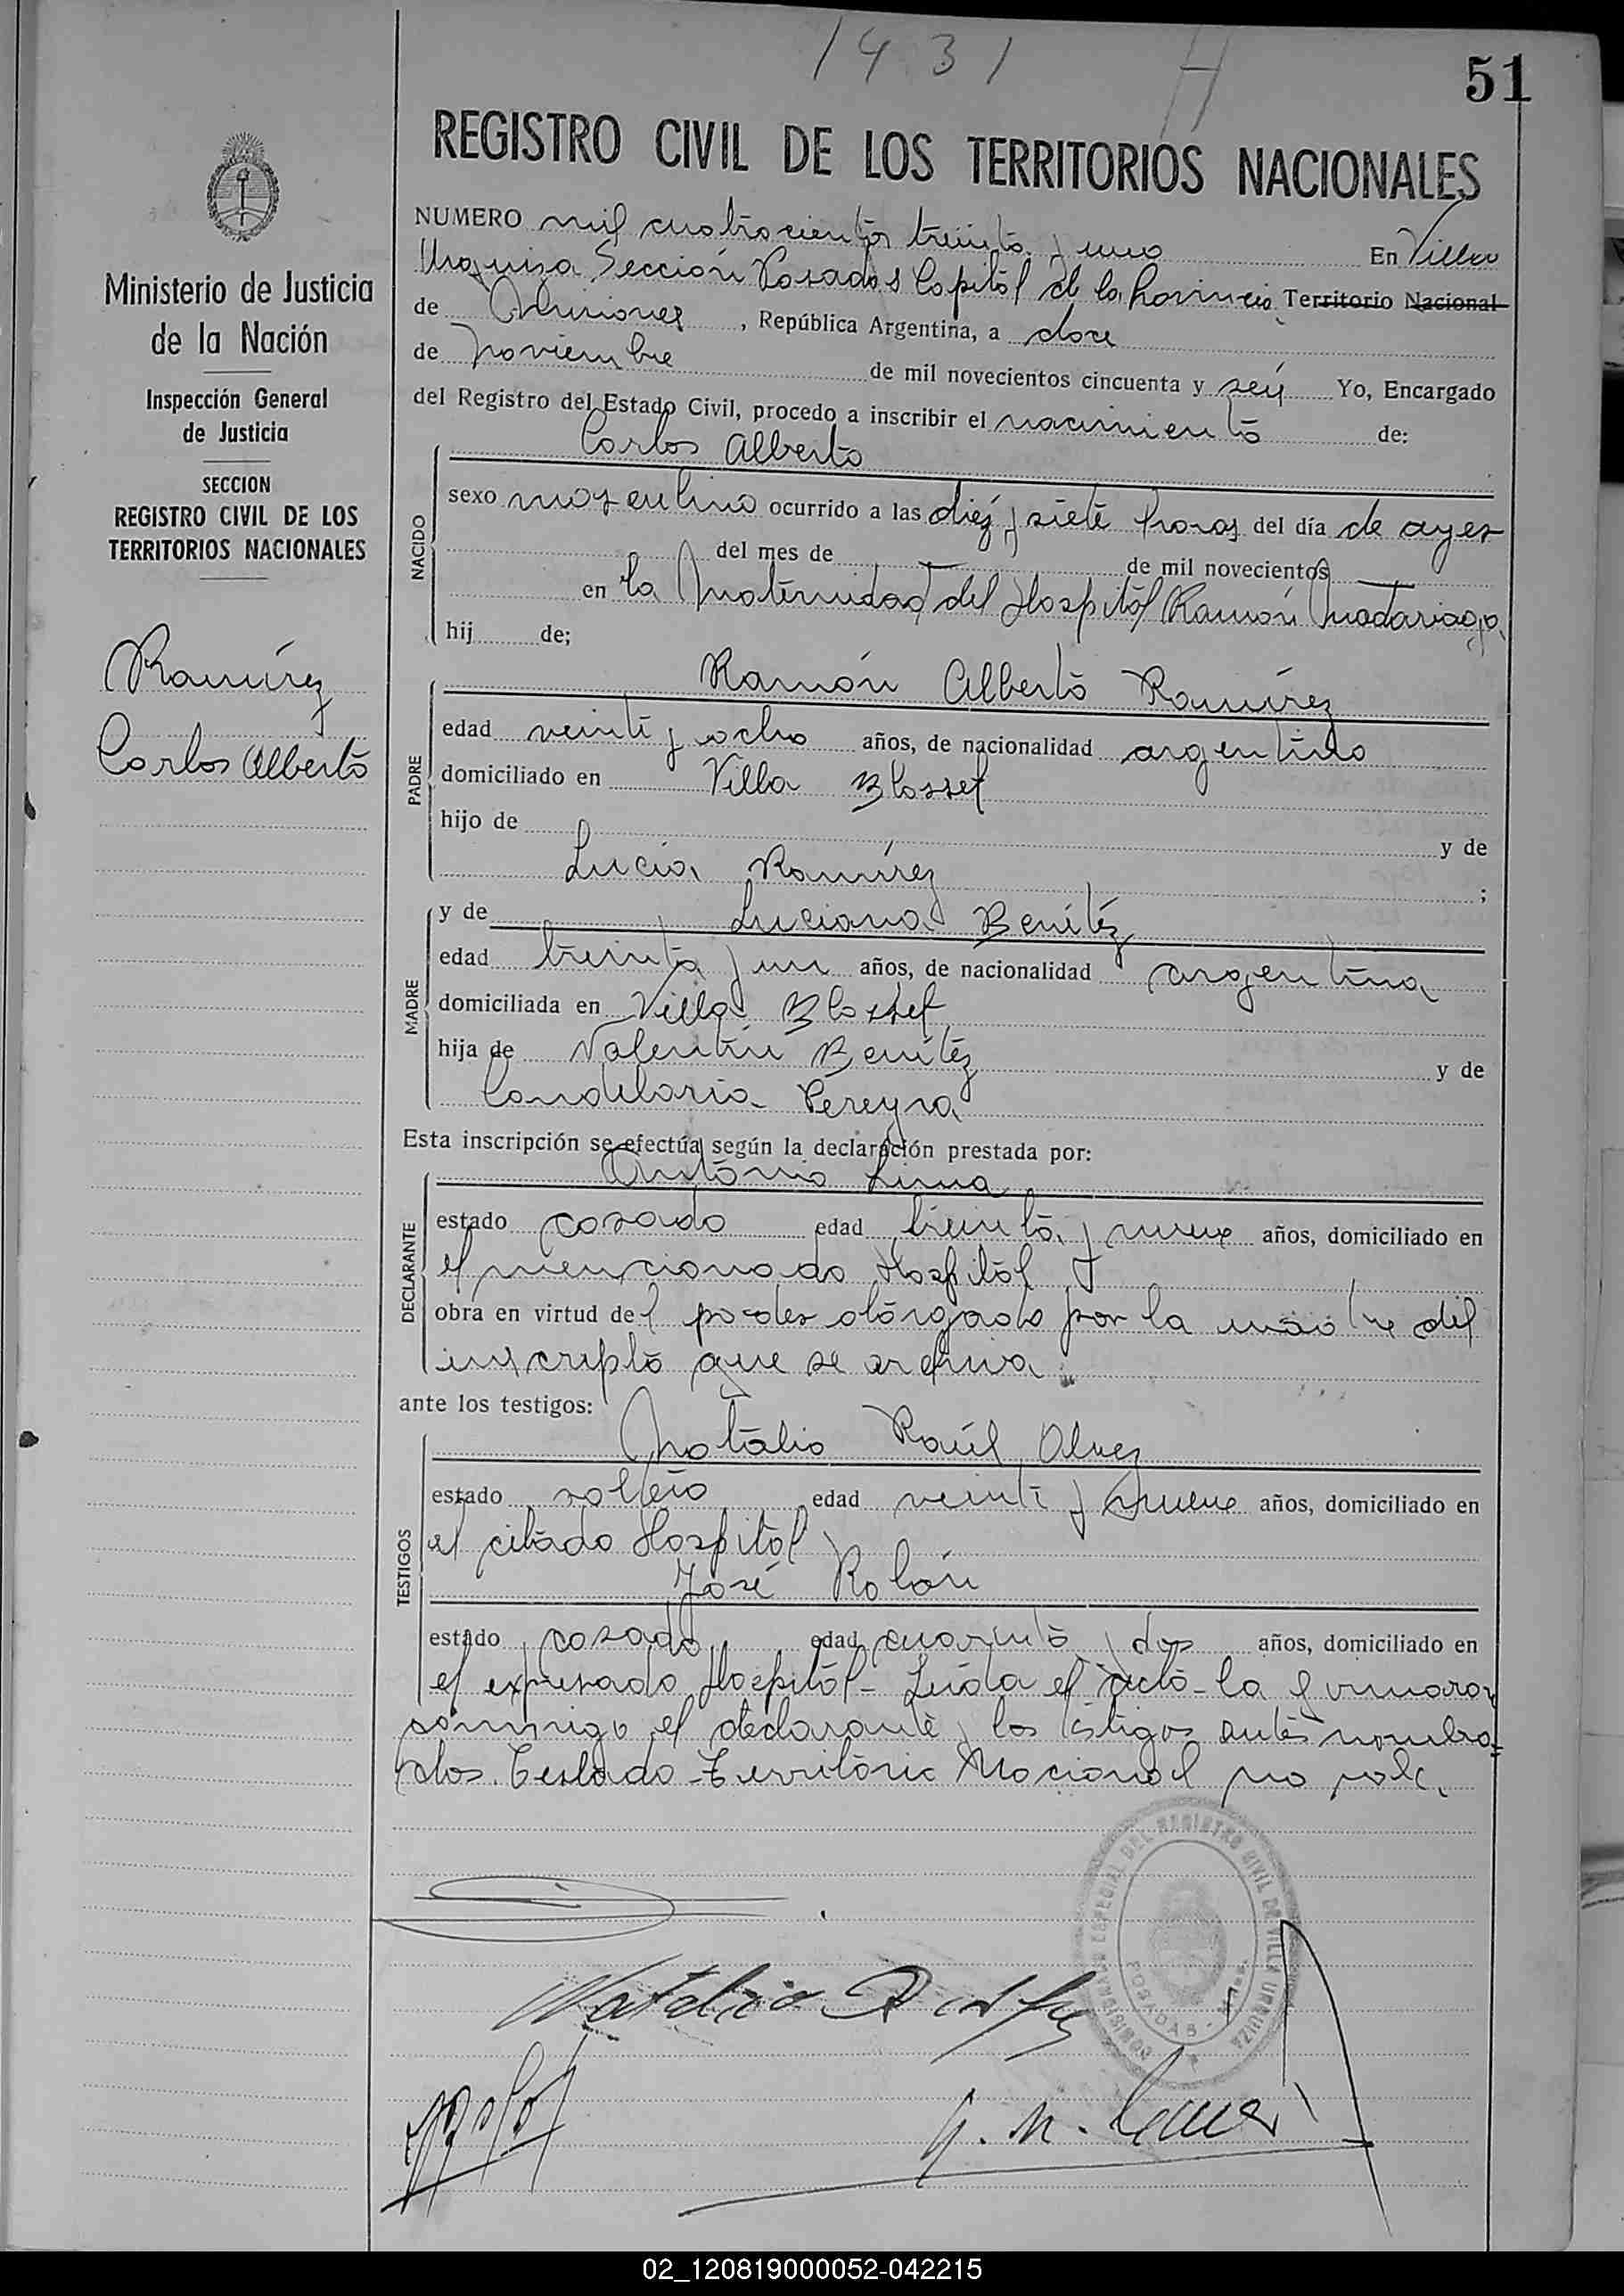 1431
51
REGISTRO CIVIL DE LOS TERRITORIOS NACIONALES
Ministerio de Justicia
de la Nación
Inspección General
de Justicia
SECCION
REGISTRO CIVIL DE LOS
TERRITORIOS NACIONALES
Ramírez
Carlos Alberto
NUMERO mil cuatrocientos treinta y uno En Villa
Urquiza Sección Posadas Capital de la Provincia Territorio Nacional
de Misiones, República Argentina, a doce
de Noviembre de mil novecientos cincuenta y seis Yo, Encargado
del Registro del Estado Civil, procedo a inscribir el nacimiento de:
Carlos Alberto
NACIDO
sexo masculino ocurrido a las diez y siete horas del día de ayer
del mes de de mil novecientos
en la Maternidad del Hospital Ramón Madariaga
hij de;
Ramón Alberto Ramírez
PADRE
edad veinte y ocho años, de nacionalidad argentino
domiciliado en Villa Blosset
hijo de y de
Lucia Ramírez ;
MADRE
y de Luciana Benítez
edad treinta y un años, de nacionalidad argentina
domiciliada en Villa Blosset
hija de Valentín Benítez y de
Candelaria Pereyra
Esta inscripción se efectúa según la declaración prestada por:
Antonio Luna
DECLARANTE
estado casado edad treinta y nueve años, domiciliado en
el mencionado Hospital y
obra en virtud del poder otorgado por la madre del
inscripto que se archiva.
ante los testigos:
Natalio Raúl Alvez
TESTIGOS
estado soltero edad veinte y nueve años, domiciliado en
el citado Hospital
José Rolón
estado casado edad cuarenta y dos años, domiciliado en
el expresado Hospital - Leída el acta - la firmaron
conmigo el declarante y los testigos antes nombra=
dos. Testado - Territorio Nacional no vale.
REGISTRO CIVIL DE VILLA URQUIZA
POSADAS
02_120819000052-042215